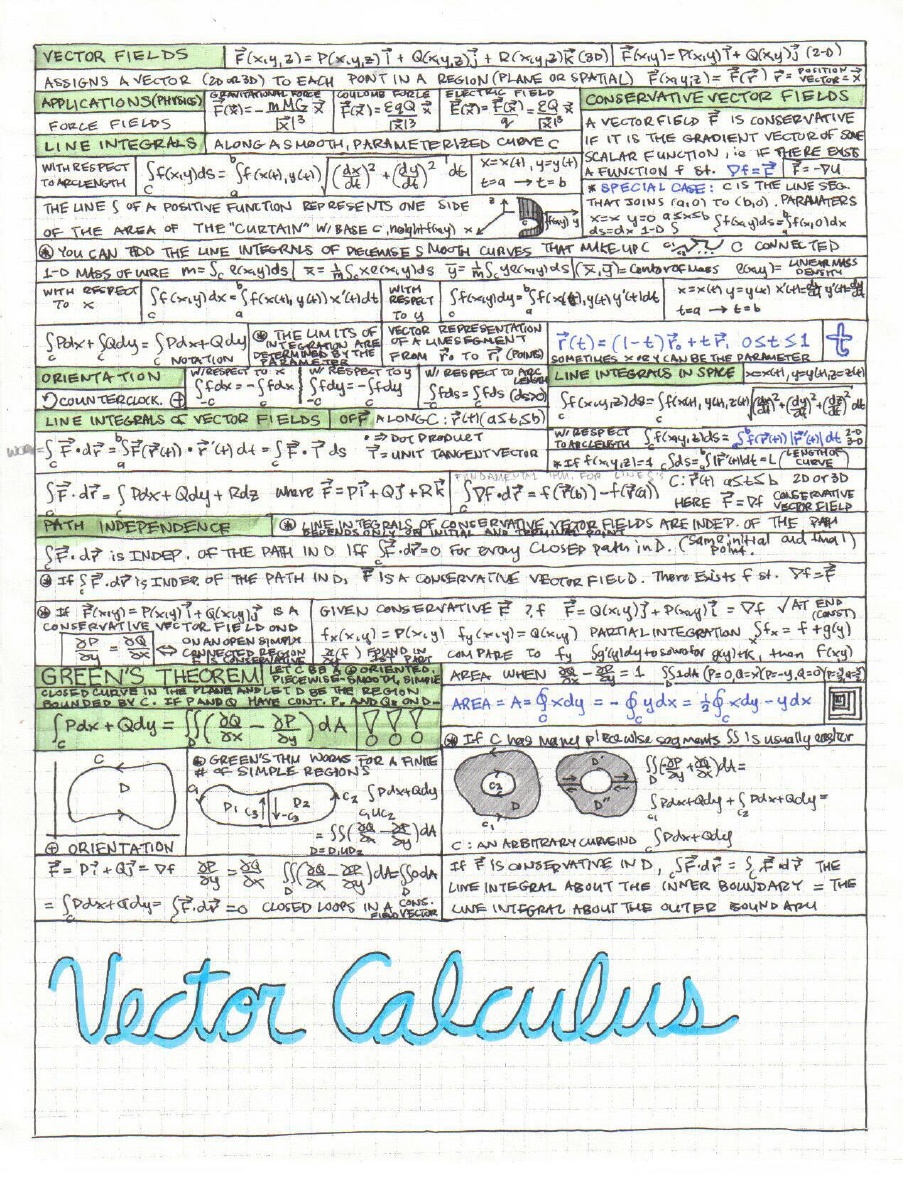 VECTOR FIELDS
F⃗(x,y,z) = P(x,y,z)i⃗ + Q(x,y,z)j⃗ + R(x,y,z)k⃗ (3D)
F⃗(x,y) = P(x,y)i⃗ + Q(x,y)j⃗ (2-D)
ASSIGNS A VECTOR (2D OR 3D) TO EACH POINT IN A REGION (PLANE OR SPATIAL) F⃗(x,y,z) = F⃗(r⃗) r⃗ = POSITION VECTOR = x⃗
APPLICATIONS (PHYSICS)
FORCE FIELDS
GRAVITATIONAL FORCE
F⃗(x⃗) = -mMG x⃗ / |x⃗|³
COULOMB FORCE
F⃗(x⃗) = εqQ x⃗ / |x⃗|³
ELECTRIC FIELD
E⃗(x⃗) = F⃗(x⃗)/q = εQ x⃗ / |x⃗|³
CONSERVATIVE VECTOR FIELDS
A VECTOR FIELD F⃗ IS CONSERVATIVE
IF IT IS THE GRADIENT VECTOR OF SOME
SCALAR FUNCTION, ie IF THERE EXISTS
A FUNCTION f st. ∇f = F⃗ | F⃗ = -∇U
* SPECIAL CASE: C IS THE LINE SEG.
THAT JOINS (a,0) TO (b,0). PARAMATERS
x=x y=0 a≤x≤b ∫f(x,y)ds = ∫f(x,0)dx
ds=dx 1-D ∫
LINE INTEGRALS
ALONG A SMOOTH, PARAMETERIZED CURVE C
WITH RESPECT TO ARC LENGTH
∫_C f(x,y)ds = ∫_a^b f(x(t),y(t)) √((dx/dt)² + (dy/dt)²) dt
x=x(t), y=y(t)
t=a → t=b
THE LINE ∫ OF A POSITIVE FUNCTION REPRESENTS ONE SIDE
OF THE AREA OF THE "CURTAIN" W/ BASE C, height f(x,y)
z x y C f(x,y)
* YOU CAN ADD THE LINE INTEGRALS OF PIECEWISE SMOOTH CURVES THAT MAKE UP C C CONNECTED
1-D MASS OF WIRE m = ∫_C ρ(x,y)ds | x̄ = 1/m ∫_C xρ(x,y)ds ȳ = 1/m ∫_C yρ(x,y)ds | (x̄,ȳ) = center of mass ρ(x,y) = LINEAR MASS DENSITY
WITH RESPECT TO x
∫_C f(x,y)dx = ∫_a^b f(x(t),y(t)) x'(t)dt
WITH RESPECT TO y
∫_C f(x,y)dy = ∫_a^b f(x(t),y(t)) y'(t)dt
x=x(t) y=y(x) x'(t)=dx/dt y'(t)=dy/dt
t=a → t=b
∫_C Pdx + ∫_C Qdy = ∫_C Pdx + Qdy
NOTATION
* THE LIMITS OF
INTEGRATION ARE
DETERMINED BY THE
PARAMETER
VECTOR REPRESENTATION
OF A LINE SEGMENT
FROM r⃗₀ TO r⃗₁ (POINTS)
r⃗(t) = (1-t)r⃗₀ + t r⃗₁ 0≤t≤1
SOMETIMES x OR y CAN BE THE PARAMETER
ORIENTATION
COUNTERCLOCK. ⊕
W/ RESPECT TO x
∫_-C fdx = -∫_C fdx
W/ RESPECT TO y
∫_-C fdy = -∫_C fdy
W/ RESPECT TO ARC LENGTH
∫_-C fds = ∫_C fds (ds>0)
LINE INTEGRALS IN SPACE
x=x(t), y=y(t), z=z(t)
∫_C f(x,y,z)ds = ∫_a^b f(x(t),y(t),z(t)) √((dx/dt)² + (dy/dt)² + (dz/dt)²) dt
W/ RESPECT TO ARC LENGTH ∫_C f(x,y,z)ds = ∫_a^b f(r⃗(t)) |r⃗'(t)| dt 2-D 3-D
* If f(x,y,z)=1 ∫_C ds = ∫_a^b |r⃗'(t)|dt = L (LENGTH OF CURVE)
LINE INTEGRALS OF VECTOR FIELDS
OF F⃗ ALONG C: r⃗(t) (a≤t≤b)
WORK = ∫_C F⃗•dr⃗ = ∫_a^b F⃗(r⃗(t))•r⃗'(t)dt = ∫_C F⃗•T⃗ ds
• ⇒ DOT PRODUCT
T⃗ = UNIT TANGENT VECTOR
∫_C F⃗•dr⃗ = ∫_C Pdx + Qdy + Rdz where F⃗ = Pi⃗ + Qj⃗ + Rk⃗
FUNDAMENTAL THM. FOR LINE ∫'S
∫_C ∇F•dr⃗ = f(r⃗(b)) - f(r⃗(a))
C: r⃗(t) a≤t≤b 2D OR 3D
HERE F⃗ = ∇f CONSERVATIVE VECTOR FIELD
PATH INDEPENDENCE
* LINE INTEGRALS OF CONSERVATIVE VECTOR FIELDS ARE INDEP. OF THE PATH
DEPENDS ONLY ON INITIAL AND TERMINAL POINT
∫_C F⃗•dr⃗ IS INDEP. OF THE PATH IN D IFF ∫_C F⃗•dr⃗ = 0 For every CLOSED path in D. (same initial and final point.)
* If ∫_C F⃗•dr⃗ IS INDEP. OF THE PATH IN D, F⃗ IS A CONSERVATIVE VECTOR FIELD. There Exists f st. ∇f = F⃗
* If F⃗(x,y) = P(x,y)i⃗ + Q(x,y)j⃗ IS A
CONSERVATIVE VECTOR FIELD ON D
∂P/∂y = ∂Q/∂x ⇔ ON AN OPEN SIMPLY
CONNECTED REGION
F IS CONSERVATIVE
GIVEN CONSERVATIVE F⃗ ? f F⃗ = Q(x,y)j⃗ + P(x,y)i⃗ = ∇f √ AT END (CONST)
f_x(x,y) = P(x,y) f_y(x,y) = Q(x,y) PARTIAL INTEGRATION ∫f_x = f + g(y)
FOUND IN 1ST PART COMPARE TO f_y ∫g'(y)dy to solve for g(y)+K, then f(x,y)
GREEN'S THEOREM
LET C BE A ⊕ ORIENTED,
PIECEWISE-SMOOTH, SIMPLE
CLOSED CURVE IN THE PLANE AND LET D BE THE REGION
BOUNDED BY C. IF P AND Q HAVE CONT. P. AND Q's ON D -
∫_C Pdx + Qdy = ∬_D (∂Q/∂x - ∂P/∂y) dA !!!
AREA WHEN ∂Q/∂x - ∂P/∂y = 1 ∬1dA (P=0,Q=x) (P=-y,Q=0) (P=-y/2,Q=x/2)
AREA = A = ∮_C xdy = -∮_C ydx = ½∮_C xdy - ydx
* If C has many piecewise segments ∬ is usually easier
C
D
⊕ ORIENTATION
* GREEN'S THM WORKS FOR A FINITE
# OF SIMPLE REGIONS
C₁ D₁ C₃ D₂ -C₃ C₂
∫_{C₁∪C₂} Pdx + Qdy
= ∬_{D=D₁∪D₂} (∂Q/∂x - ∂P/∂y)dA
C₂ D C₁
D' D''
∬_D (∂P/∂y + ∂Q/∂x)dA =
∫_{C₁} Pdx + Qdy + ∫_{C₂} Pdx + Qdy =
∫_C Pdx + Qdy
C: AN ARBITRARY CURVE IN D
F⃗ = Pi⃗ + Qj⃗ = ∇f ∂P/∂y = ∂Q/∂x ∬_D (∂Q/∂x - ∂P/∂y)dA = ∬_D 0dA
= ∫_C Pdx + Qdy = ∫_C F⃗•dr⃗ = 0 CLOSED LOOPS IN A CONS. VECTOR FIELD
If F⃗ IS CONSERVATIVE IN D, ∫_C F⃗•dr⃗ = ∫_C F⃗•dr⃗ THE
LINE INTEGRAL ABOUT THE INNER BOUNDARY = THE
LINE INTEGRAL ABOUT THE OUTER BOUNDARY
Vector Calculus